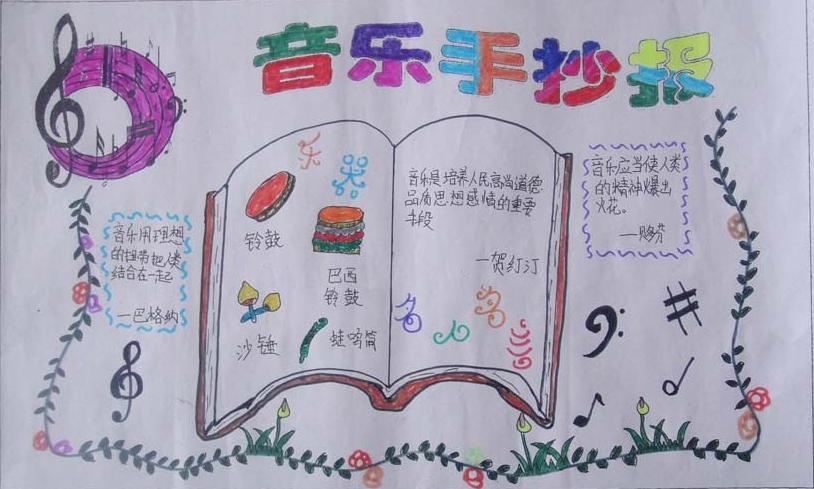 音乐手抄报
音乐用理想
的纽带把人类
结合在一起
—巴格纳
乐器
铃鼓
巴西
铃鼓
沙锤
蛙鸣筒
音乐是培养人民高尚道德
品质思想感情的重要
手段
—贺红汀
名人名言
音乐应当使人类
的精神爆出
火花。
—贝多芬